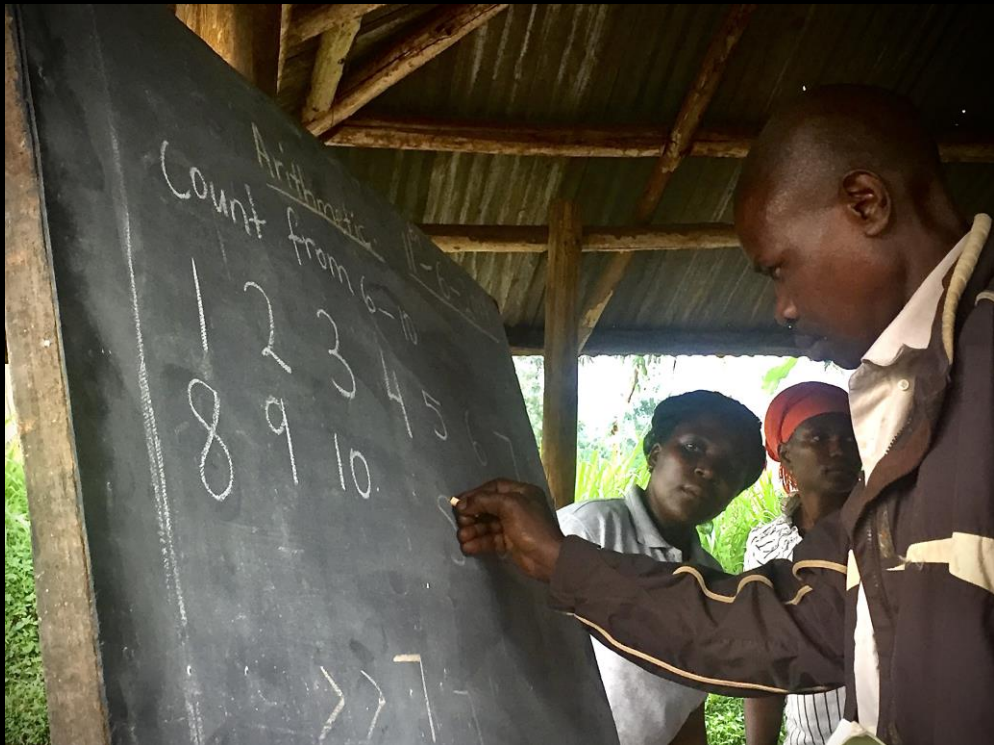 Arithmetic
Count from 6-10
1 2 3 4 5 6 7
8 9 10.
8
>>7